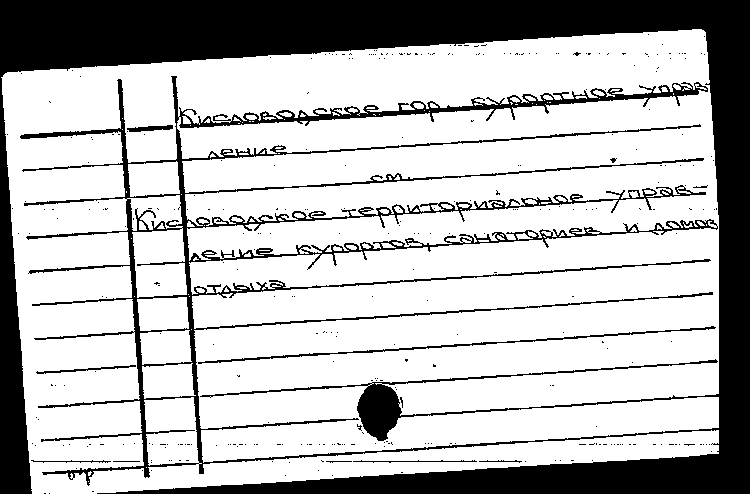 Кисловодское гор. курортное управ-
ление
см.
Кисловодское территориальное управ-
ление курортов, санаториев и домов
отдыха